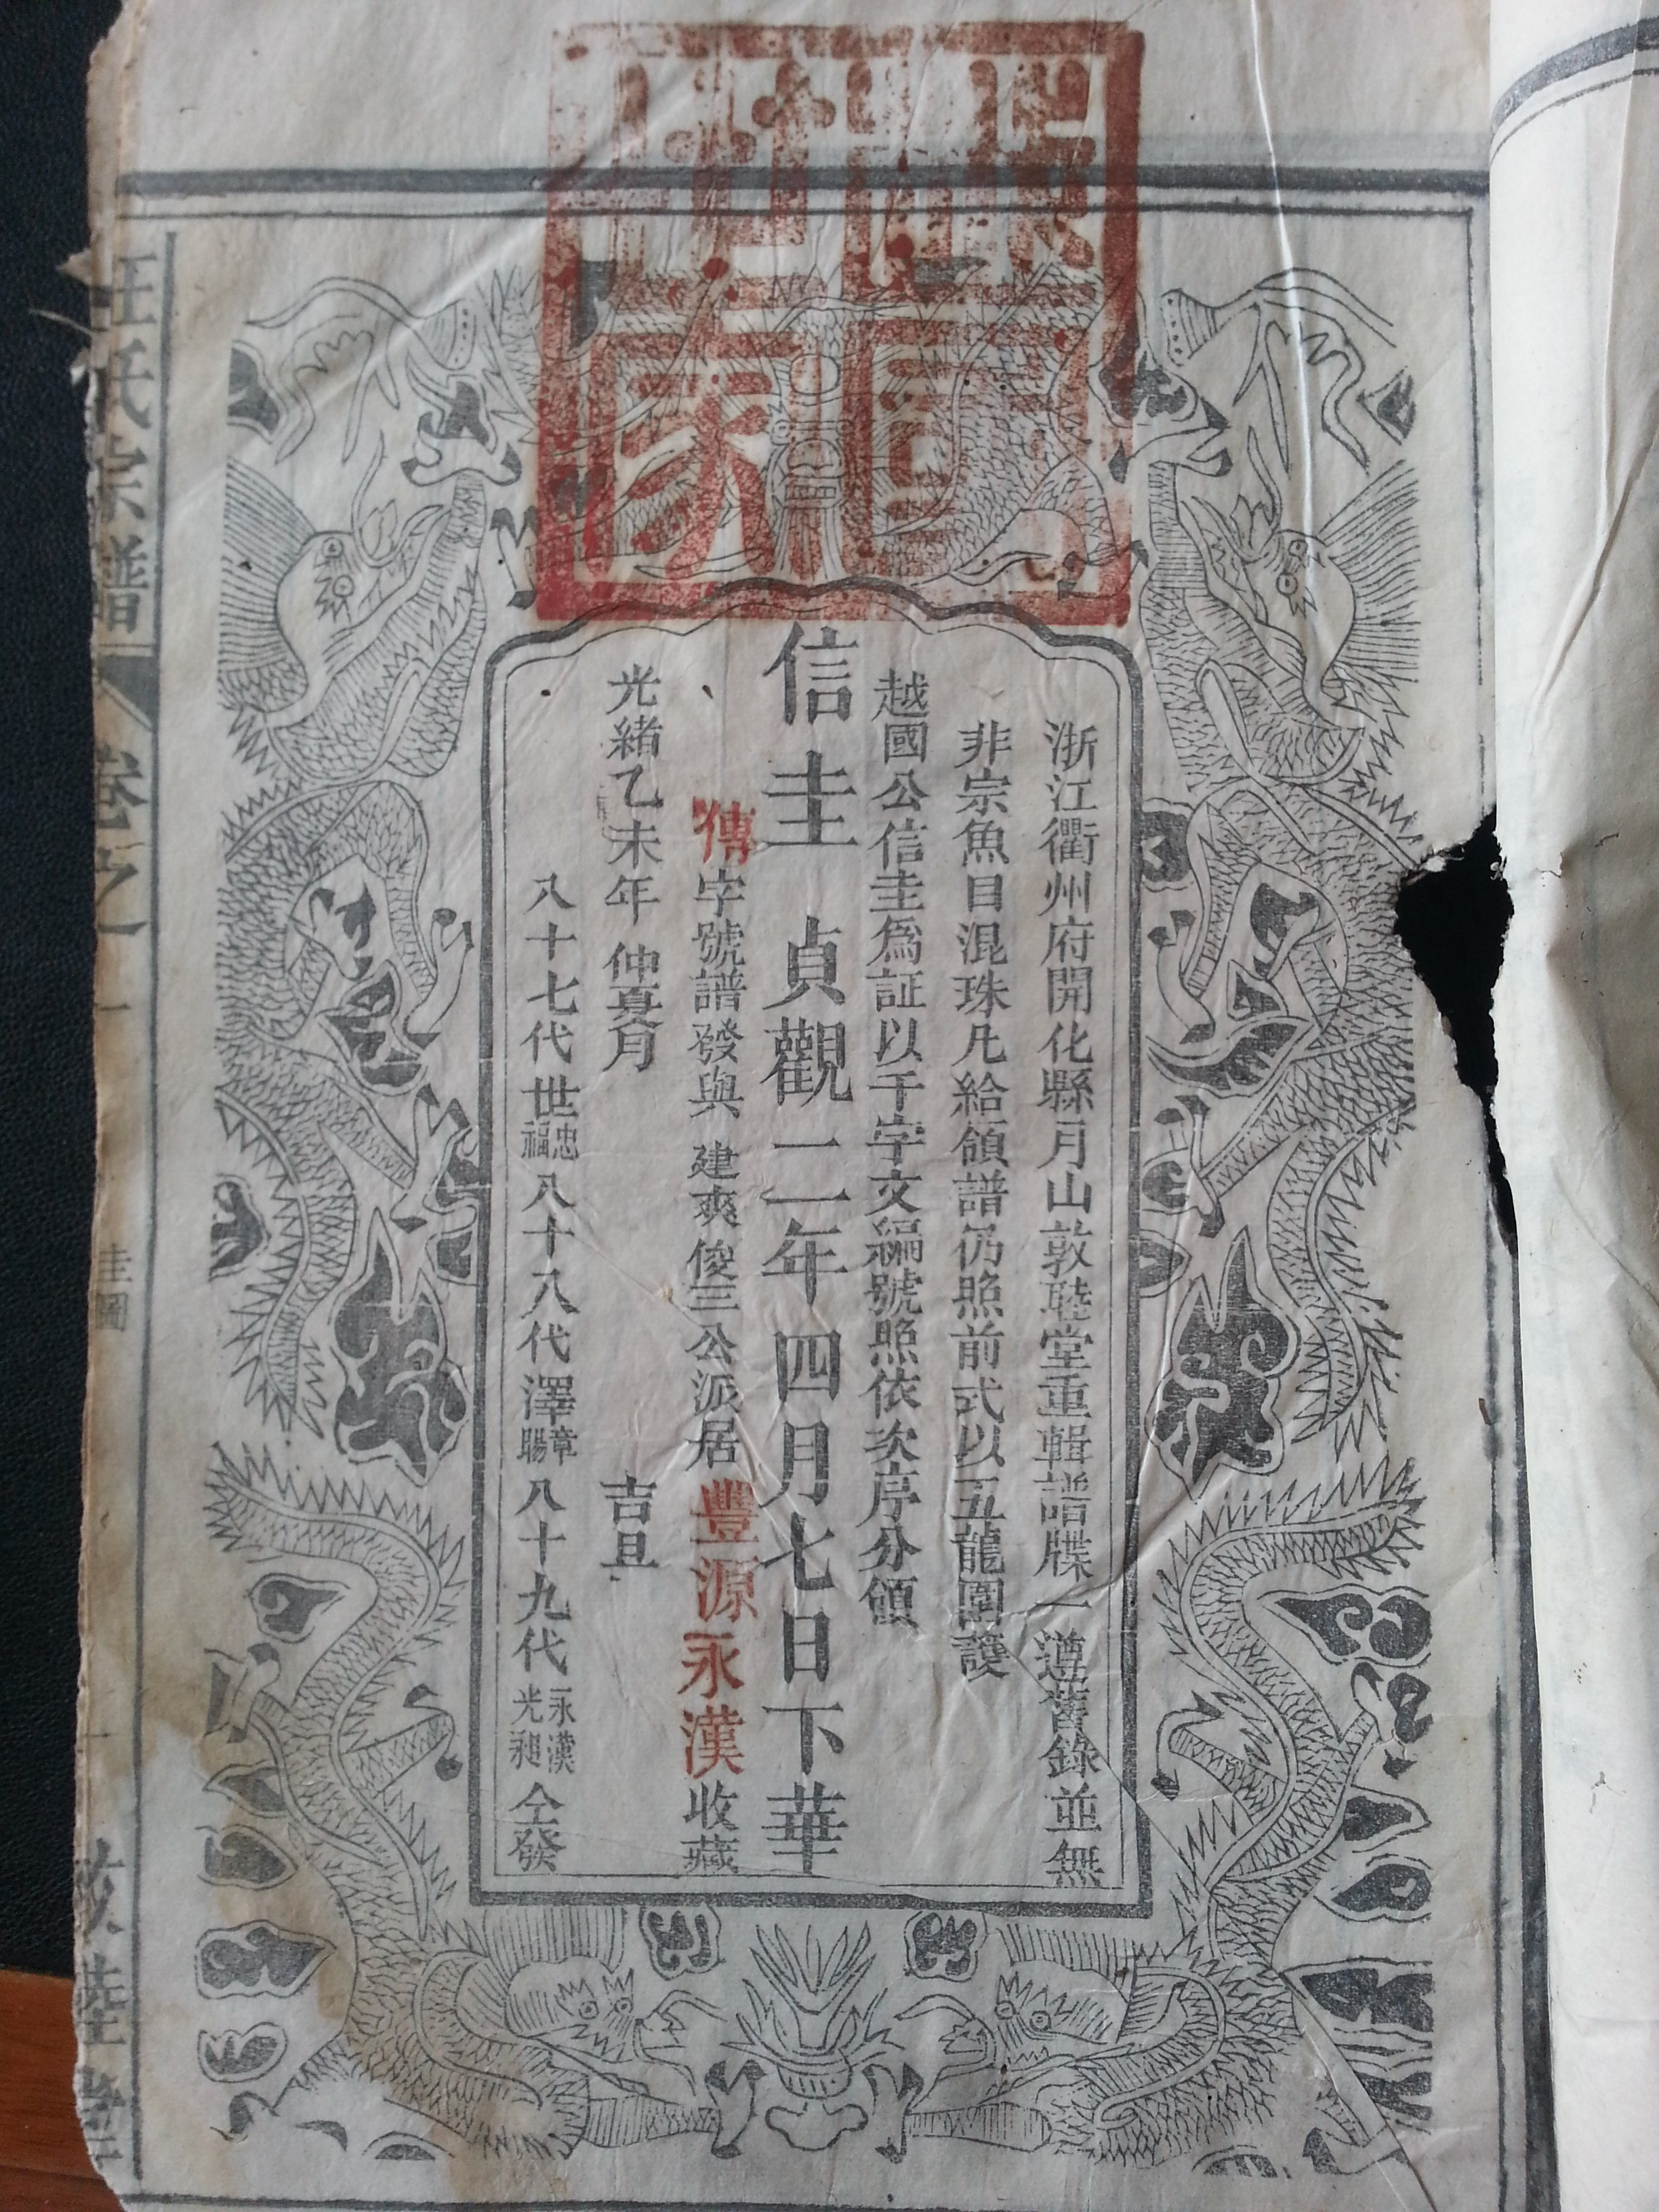 浙江衢州府開化縣月山敦睦堂重輯譜牒一遵舊錄並無
非宗魚目混珠凡給領譜仍照前式以五龍圍護
越國公信圭為証以千字文編號照依次序分領
信圭 貞觀二年四月七日下華
傳字號譜發與 建爽俊三公派居豐源永漢收藏
光緒乙未年 仲夏月 吉旦
八十七代世忠福八十八代澤章賜八十九代永漢光昶仝發
汪氏宗譜 卷之一 圭圖 一 敦睦堂